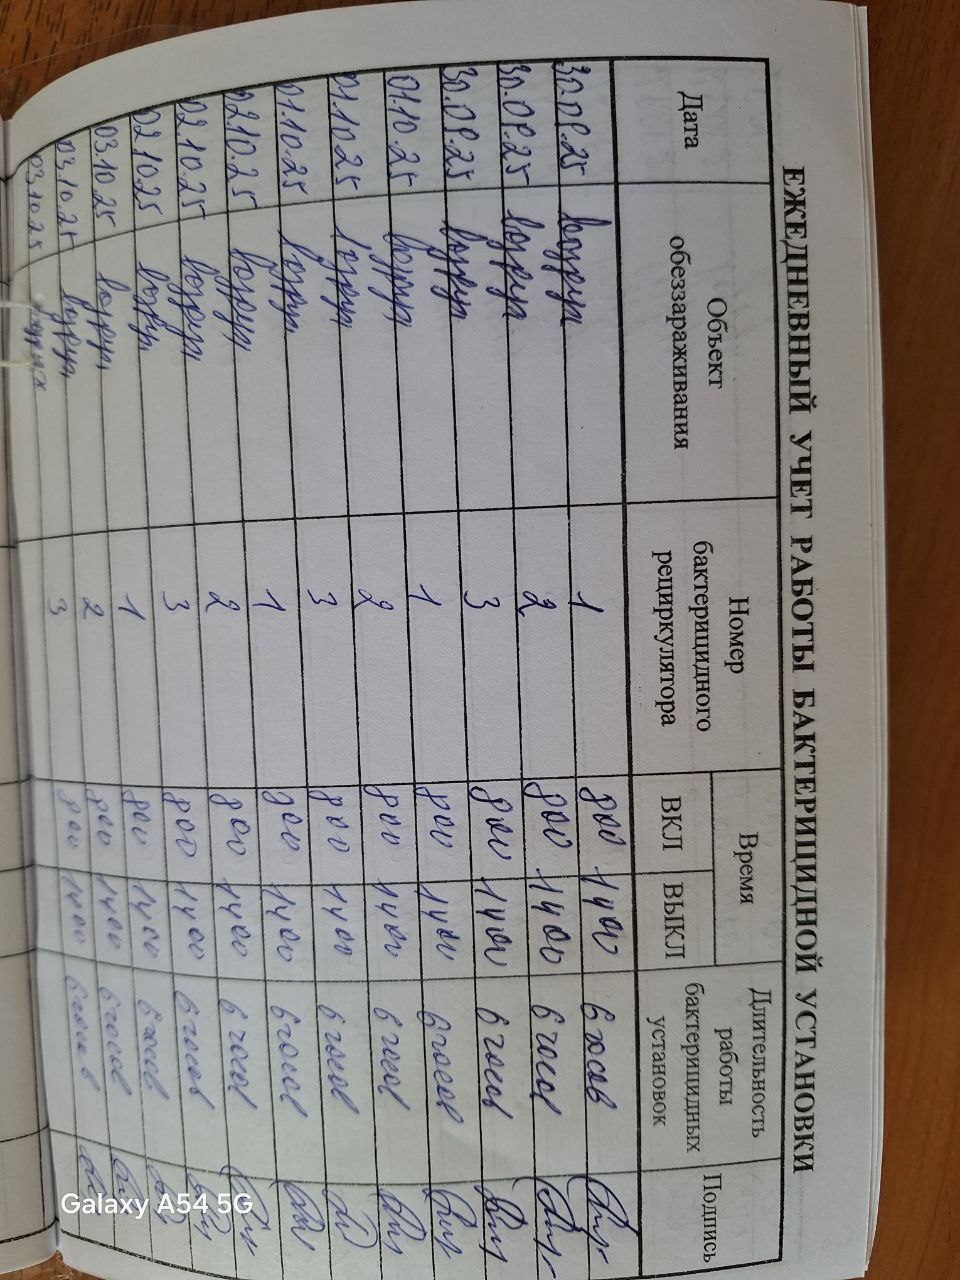 ЕЖЕДНЕВНЫЙ УЧЕТ РАБОТЫ БАКТЕРИЦИДНОЙ УСТАНОВКИ
Дата Объект обеззараживания Номер бактерицидного рециркулятора Время ВКЛ ВЫКЛ Длительность работы бактерицидных установок Подпись
30.09.25 воздух 1 800 1400 6 часов
30.09.25 воздух 2 800 1400 6 часов
30.09.25 воздух 3 800 1400 6 часов
01.10.25 воздух 1 800 1400 6 часов
01.10.25 воздух 2 800 1400 6 часов
01.10.25 воздух 3 800 1400 6 часов
02.10.25 воздух 1 800 1400 6 часов
02.10.25 воздух 2 800 1400 6 часов
02.10.25 воздух 3 800 1400 6 часов
03.10.25 воздух 1 800 1400 6 часов
03.10.25 воздух 2 800 1400 6 часов
03.10.25 воздух 3 800 1400 6 часов
Galaxy A54 5G